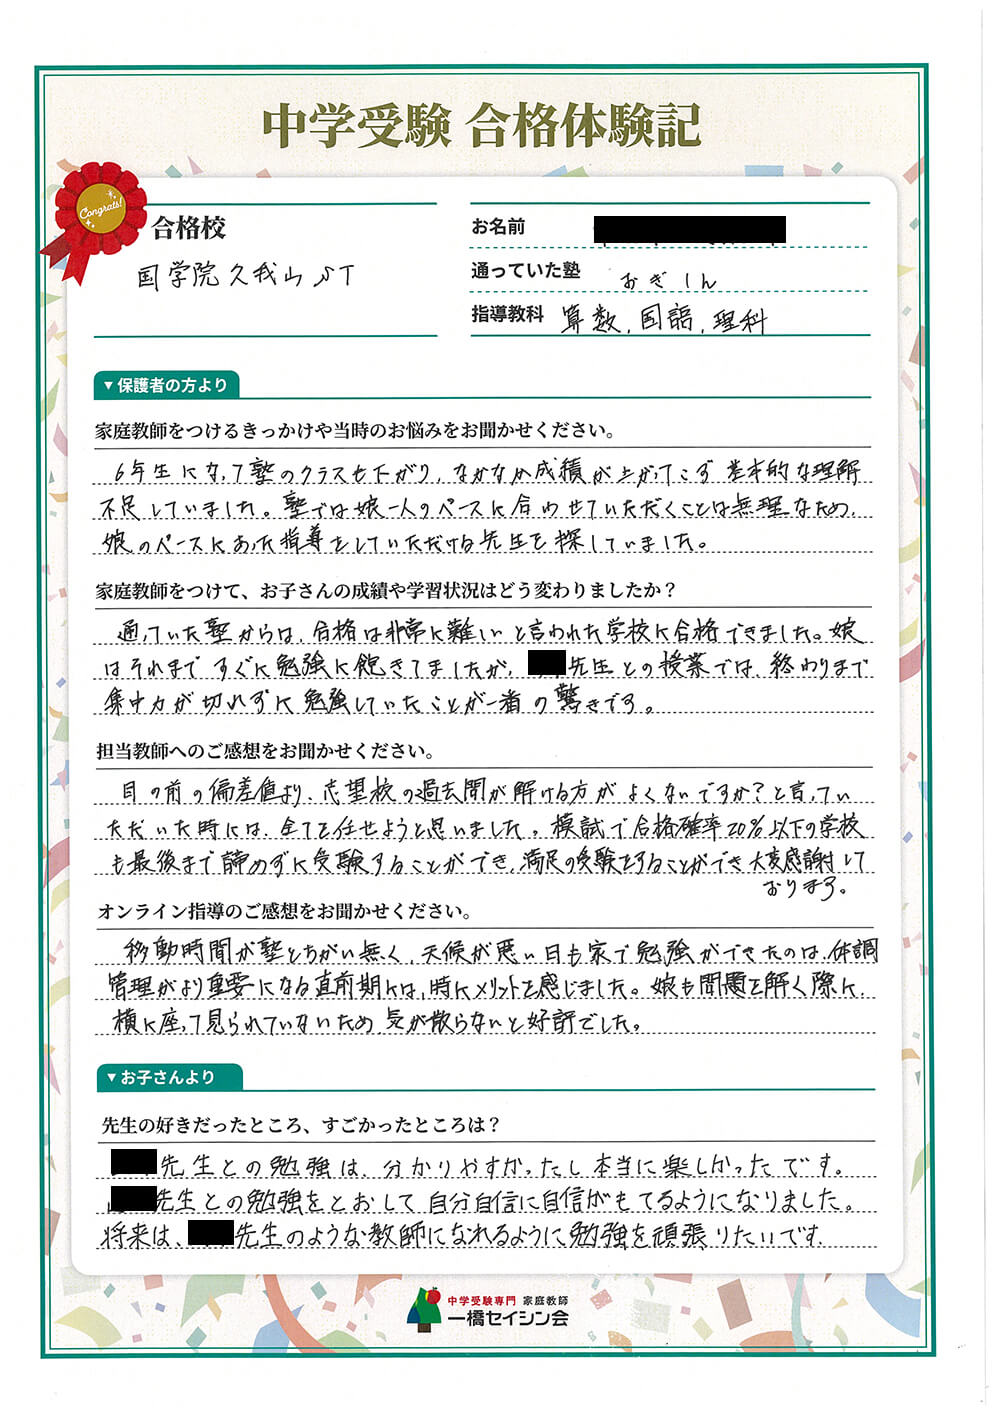 中学受験 合格体験記
Congrats!
合格校
国学院久我山ST
お名前
通っていた塾 おぎしん
指導教科 算数,国語,理科
▼保護者の方より
家庭教師をつけるきっかけや当時のお悩みをお聞かせください。
6年生になって塾のクラスも下がり、なかなか成積が上がってこず基本的な理解
不足していました。塾では娘一人のペースに合わせていただくことは無理なため、
娘のペースにあった指導をしていただける先生を探していました。
家庭教師をつけて、お子さんの成績や学習状況はどう変わりましたか？
通っていた塾からは、合格は非常に難しいと言われた学校に合格できました。娘
はそれまですぐに勉強に飽きてましたが、先生との授業では、終わりまで
集中力が切れずに勉強していたことが一番の驚きです。
担当教師へのご感想をお聞かせください。
目の前の偏差値より、志望校の過去問が解ける方がよくないですか?と言ってい
ただいた時には、全てを任せようと思いました。模試で合格確率20%以下の学校
も最後まで諦めずに受験することができ、満足の受験をすることができ大変感謝して
おります。
オンライン指導のご感想をお聞かせください。
移動時間が塾とちがい無く、天候が悪い日も家で勉強ができたのは、体調
管理がより重要になる直前期には、時にメリットを感じました。娘も問題を解く際に、
横に座って見られていないため気が散らないと好評でした。
▼お子さんより
先生の好きだったところ、すごかったところは？
先生との勉強は、分かりやすかったし本当に楽しかったです。
先生との勉強をとおして自分自信に自信がもてるようになりました。
将来は、先生のような教師になれるように勉強を頑張りたいです.
中学受験専門 家庭教師
一橋セイシン会